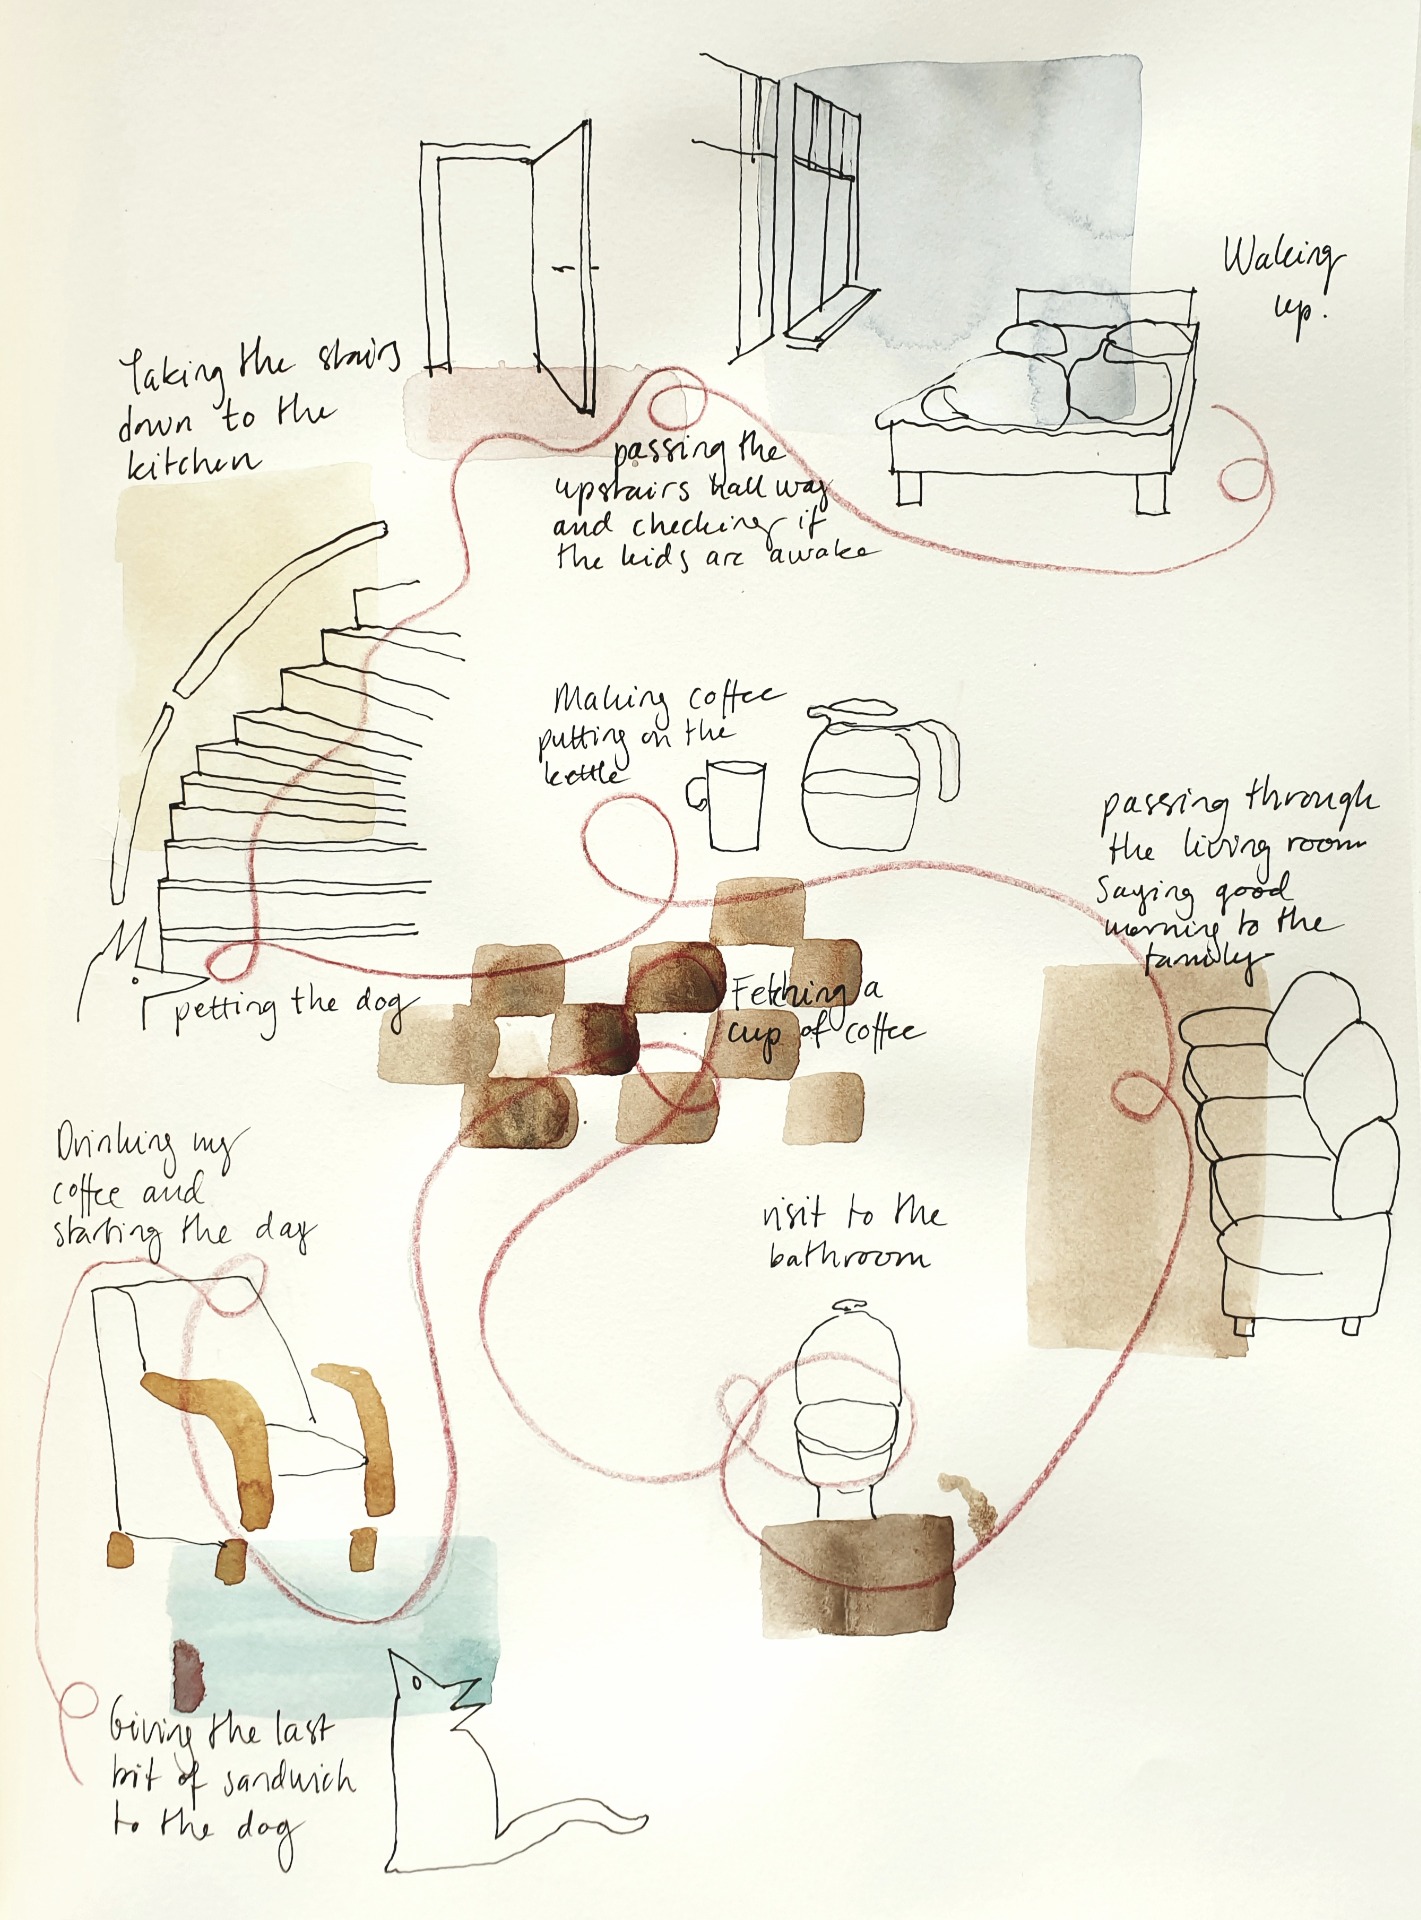 Waking
up.
passing the
upstairs hallway
and checking if
the kids are awake
Taking the stairs
down to the
kitchen
petting the dog
Making coffee
putting on the
kettle
passing through
the living room
Saying good
morning to the
family
visit to the
bathroom
Fetching a
cup of coffee
Drinking my
coffee and
starting the day
Giving the last
bit of sandwich
to the dog